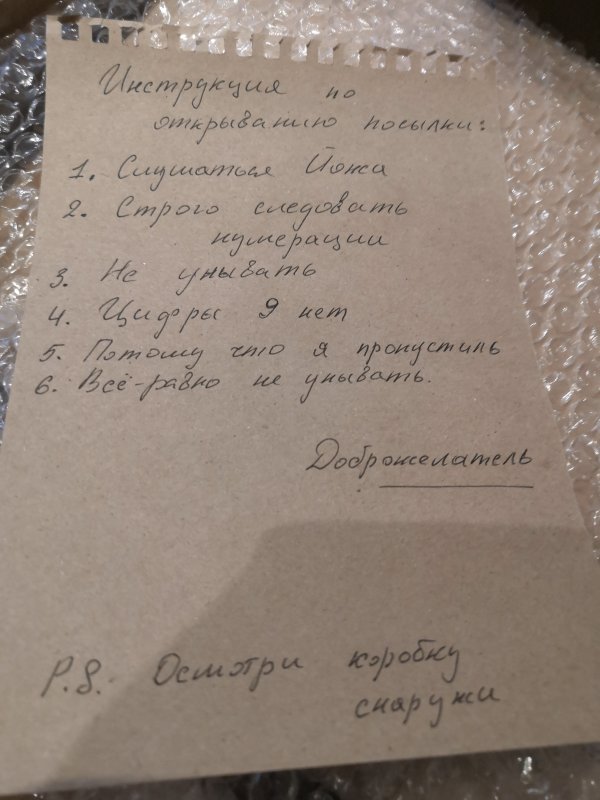 Инструкция по
открыванию посылки:
1. Слушаться Йожа
2. Строго следовать
нумерации
3. Не унывать
4. Цифры 9 нет
5. Потому что я пропустиль
6. Всё-равно не унывать.
Доброжелатель
P.S. Осмотри коробку
снаружи